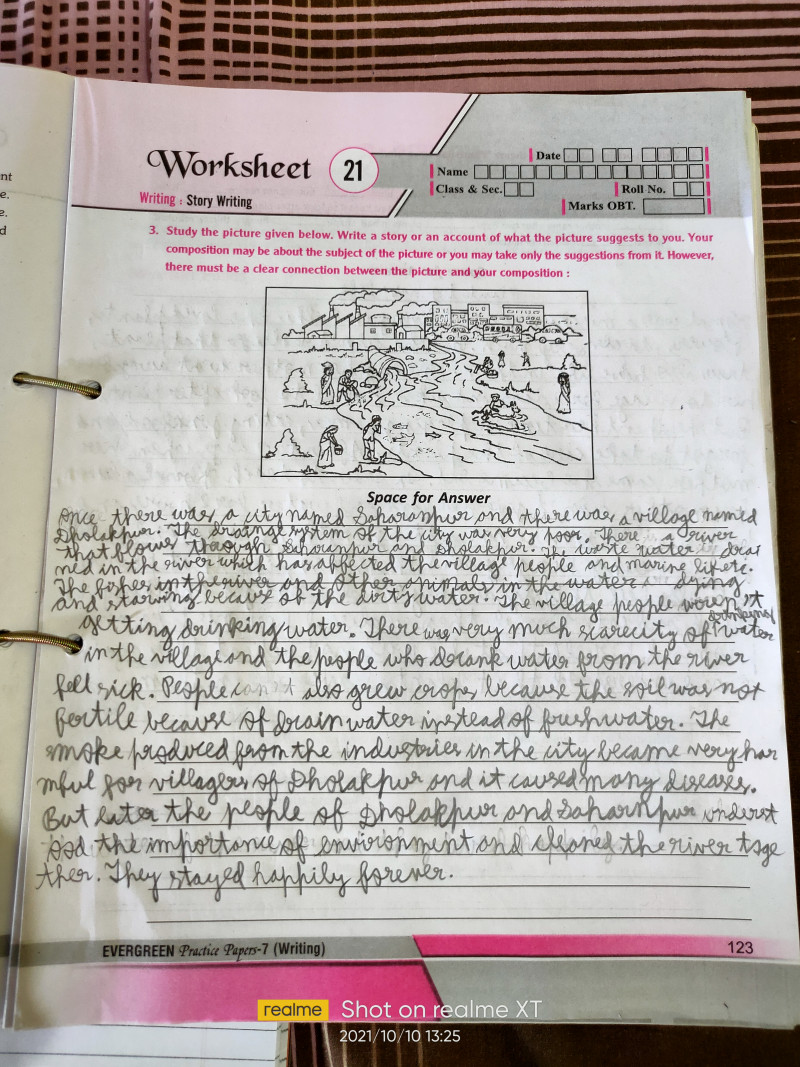 nt
e.
e.
d
Worksheet 21
Date
Name
Class & Sec. Roll No.
Marks OBT.
Writing : Story Writing
3. Study the picture given below. Write a story or an account of what the picture suggests to you. Your
composition may be about the subject of the picture or you may take only the suggestions from it. However,
there must be a clear connection between the picture and your composition :
Space for Answer
Once there was a city named Saharanpur and there was a village named
Dholakpur. The drainge system of the city was very poor. There is a river
that flows through Saharanpur and Dholakpur. The waste water is drai
ned in the river which has affected the village people and marine life etc.
The fishes in the river and other animals in the water dying
and starving becaue of the dirty water. The village people weren't
getting drinking water. There was very much scarecity of drinking water
in the village and the people who drank water from the river
fell sick. People can't also grew crops because the soil was not
fertile because of drain water instead of fresh water. The
smoke produced from the industries in the city became very har
mful for villagers of Dholakpur and it caused many diseases.
But later the people of Dholakpur and Saharnpur underst
ood the importance of environment and cleaned the river toge
ther. They stayed happily forever.
EVERGREEN Practice Papers-7 (Writing) 123
realme Shot on realme XT
2021/10/10 13:25